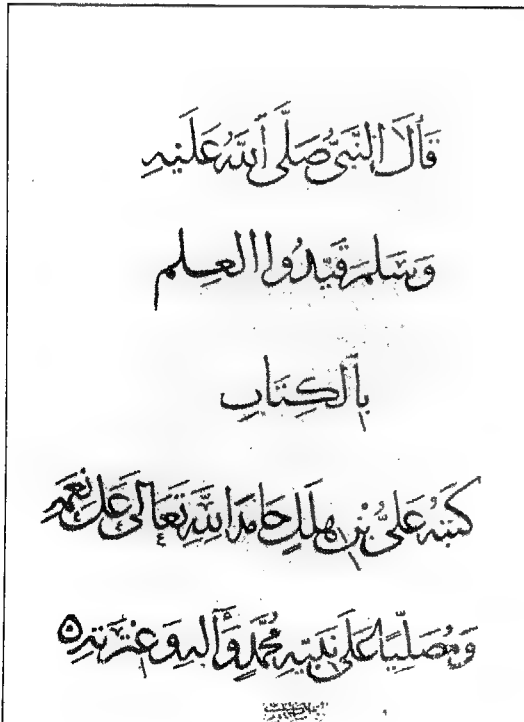 قَالَ النَّبِيُّ صَلَّى ٱللَّهُ عَلَيْهِ
وَسَلَّمَ قَيِّدُوا الْعِلْمَ
بِالْكِتَابِ
كَتَبَهُ عَلِيُّ بْنُ هِلَالٍ حَامِدًا لِلَّهِ تَعَالَى عَلَى نِعَمِهِ
وَمُصَلِّيًا عَلَى نَبِيِّهِ مُحَمَّدٍ وَآلِهِ وَعِتْرَتِهِ